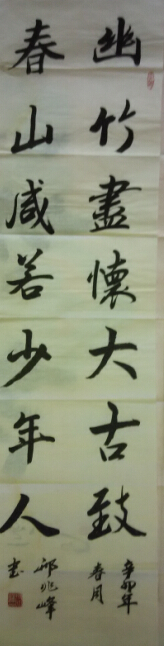 幽竹盡懷大古致
春山咸若少年人
辛卯年
春月
兆峰
书